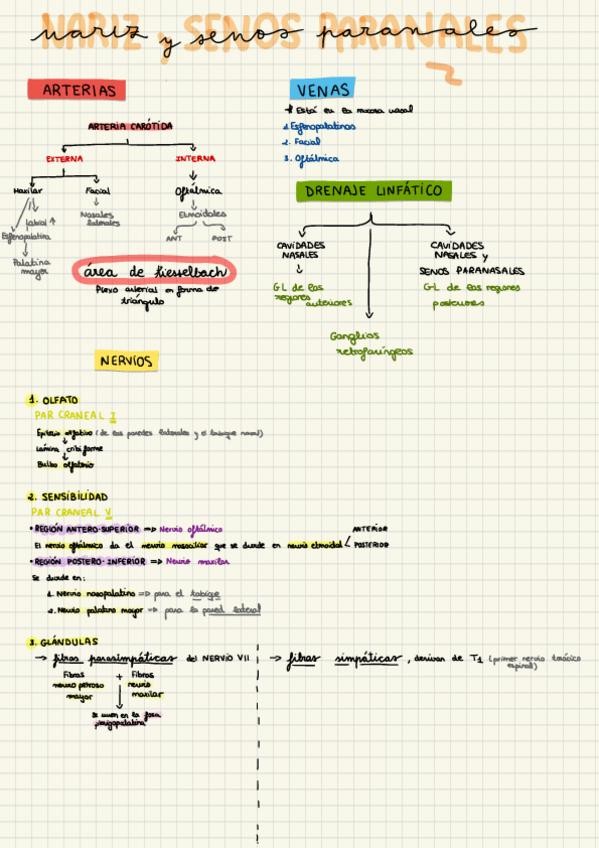 NARIZ Y SENOS PARANALES
nariz y senos paranales
ARTERIAS
ARTERIA CARÓTIDA
EXTERNA
INTERNA
Maxilar
Facial
Oftálmica
labial
Nasales laterales
Etmoidales
Esfenopalatina
ANT
POST
Palatina mayor
área de Kiesselbach
Plexo arterial en forma de
triángulo
VENAS
* Está en la mucosa nasal
1. Esfenopalatinas
2. Facial
3. Oftálmica
DRENAJE LINFÁTICO
CAVIDADES
NASALES
GL de las
regiones
anteriores
CAVIDADES
NASALES y
SENOS PARANASALES
GL de las regiones
posteriores
Ganglios
retrofaríngeos
NERVIOS
1. OLFATO
PAR CRANEAL I
Epitelio olfativo (de las paredes laterales y el tabique nasal)
Lámina cribiforme
Bulbo olfatorio
2. SENSIBILIDAD
PAR CRANEAL V
• REGIÓN ANTERO-SUPERIOR => Nervio oftálmico
El nervio oftálmico da el nervio nasociliar que se divide en nervio etmoidal < ANTERIOR
POSTERIOR
• REGIÓN POSTERO-INFERIOR => Nervio maxilar
Se divide en:
1. Nervio nasopalatino => para el tabique
2. Nervio palatino mayor => para la pared lateral
3. GLÁNDULAS
→ fibras parasimpáticas del NERVIO VII
Fibras + Fibras
nervio petroso mayor
nervio maxilar
Se unen en la fosa
→ fibras simpáticas, derivan de T1 (primer nervio torácico
espinal)